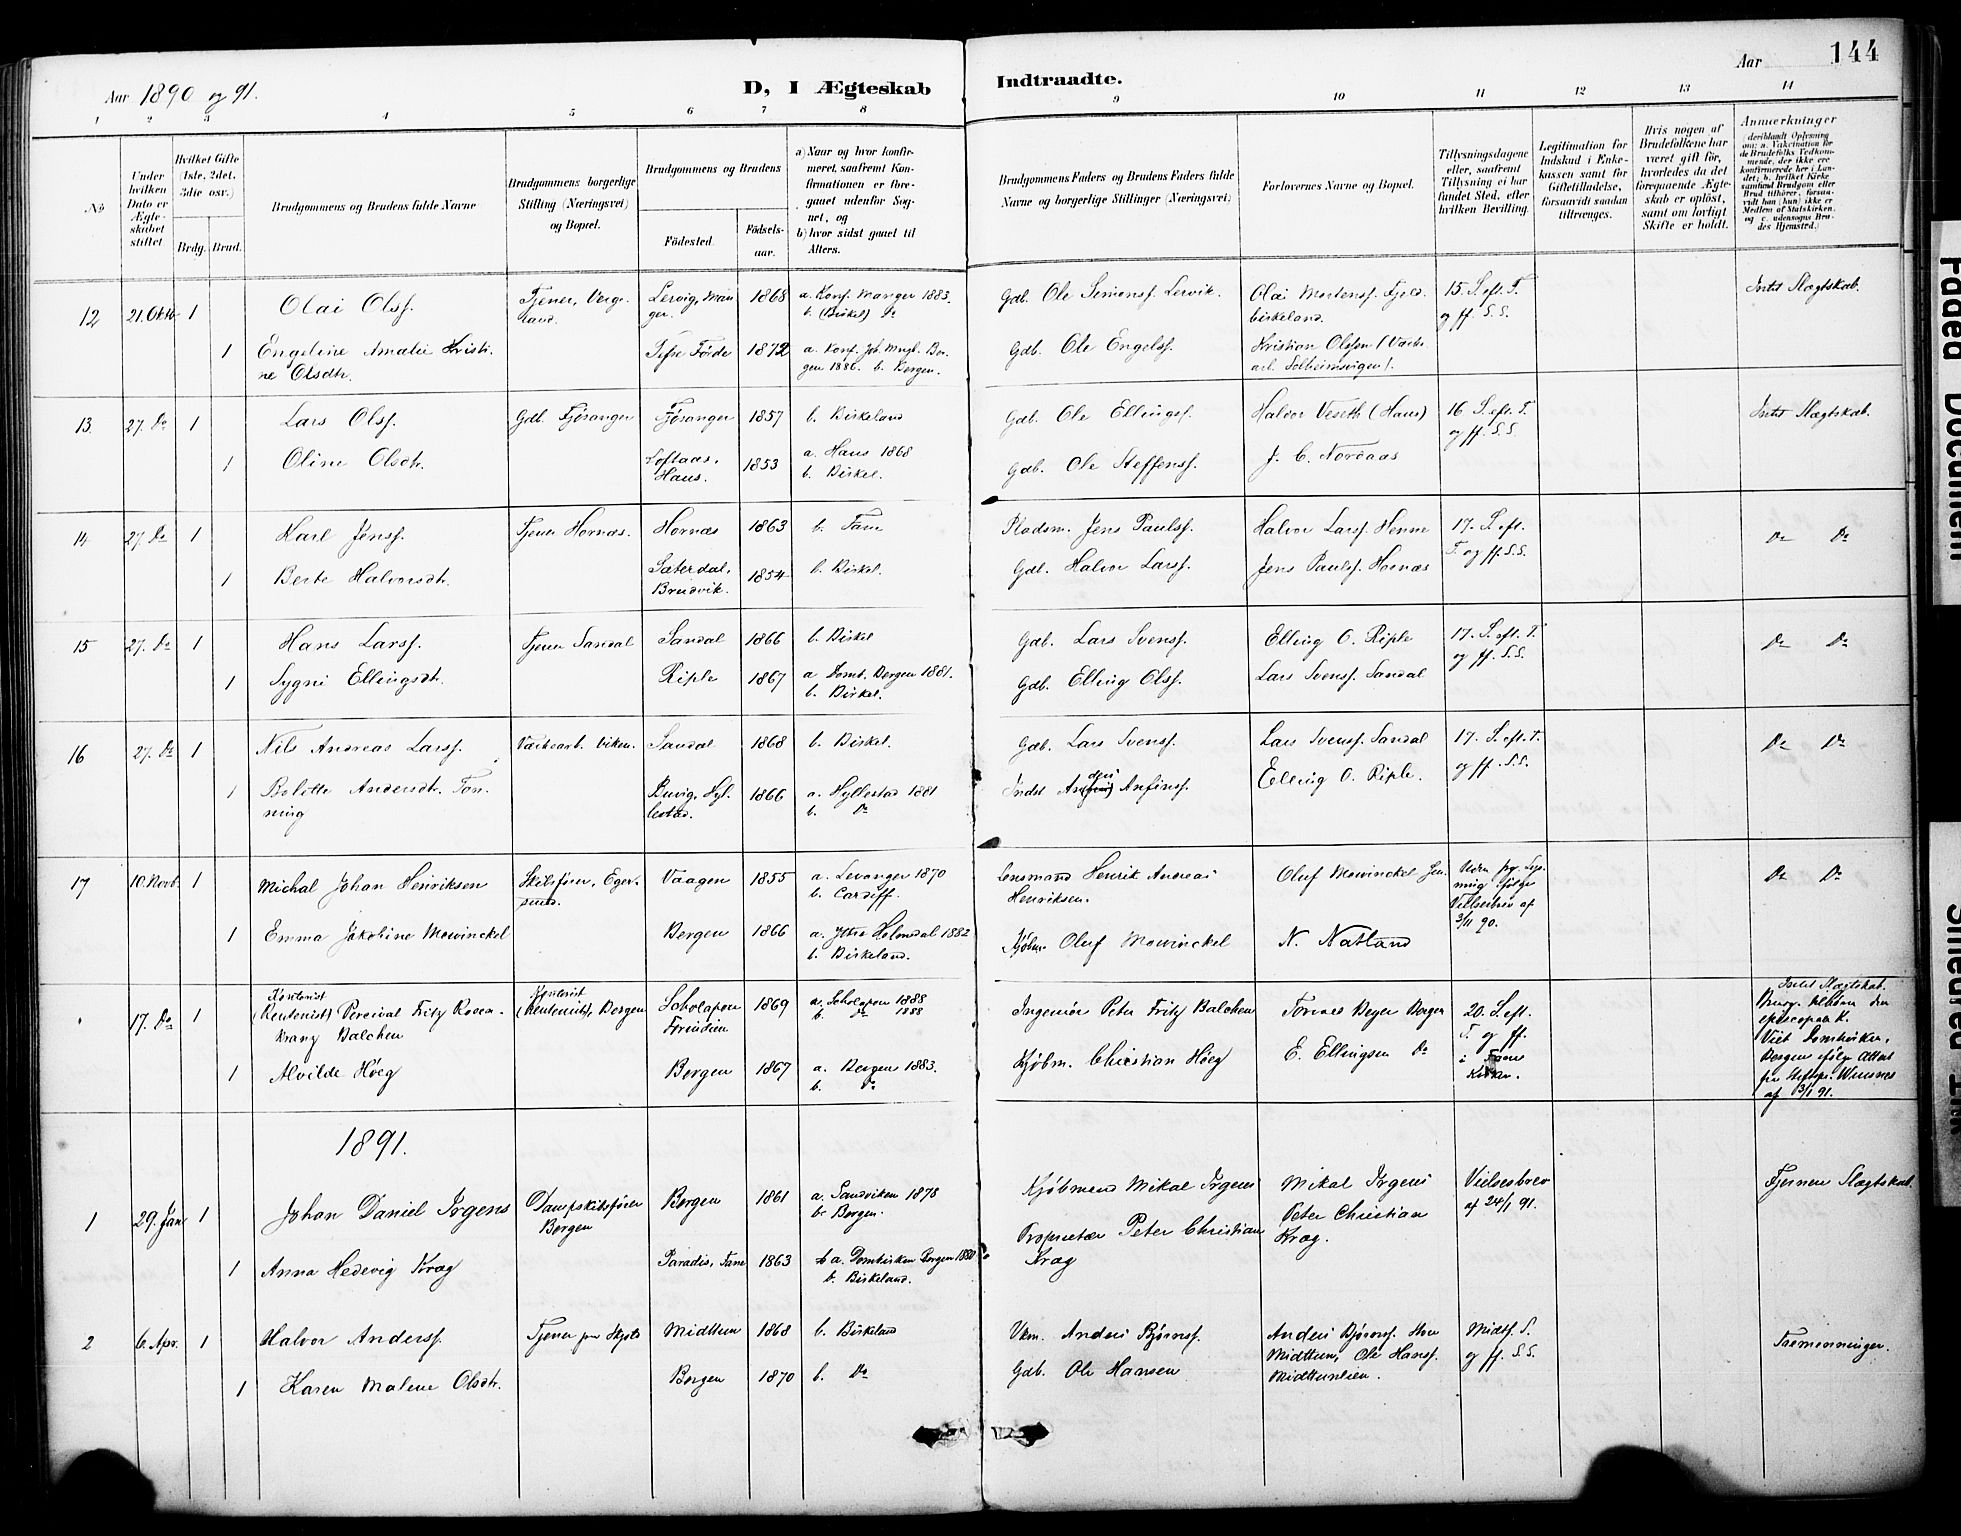 144
Aar 1890 og 91.
D, I Ægteskab Indtraadte.
Aar
1 2 3 4 5 6 7 8 9 10 11 12 13 14
No
Under hvilken Dato er Ægteskabet stiftet.
Hvilket Gifte (1ste, 2det, 3die osv.)
Brdg. Brud.
Brudgommens og Brudens fulde Navne
Brudgommens borgerlige Stilling (Næringsvei) og Bopæl.
Brudgommens og Brudens
Födested. Födselsaar.
a) Naar og hvor konfirmeret, saafremt Konfirmationen er foregaaet udenfor Sognet, og
b) hvor sidst gaaet til Alters.
Brudgommens Faders og Brudens Faders fulde Navne og borgerlige Stillinger (Næringsvei)
Forlovernes Navne og Bopæl.
Tillysningsdagene eller, saafremt Tillysning ei har fundet Sted, efter hvilken Bevilling.
Legitimation for Indskud i Enkekassen samt for Giftetilladelse, forsaavidt saadan tiltrænges.
Hvis nogen af Brudefolkene har været gift för, hvorledes da det foregaaende Ægteskab er oplöst, samt om lovligt Skifte er holdt.
Anmærkninger
(deriblandt Oplysning om: a. Vakcination for de Brudefolks Vedkommende, der ikke ere konfirmerede her i Landet; b. hvilket Kirkesamfund Brudgom eller Brud tilhörer, forsaavidt han (hun) ikke er Medlem af Statskirken, og c. udensogns Brudes Hjemsted.)
12 21. Oktb. 1 Olai Olsf. Tjener, Vergeland. Lervig, Manger. 1868 a. Konf. Manger 1883. b. (Birkel) Do Gdb. Ole Simonsf. Lervik. Olai Mortensf. Fjeldbirkeland. 15. S. eft. T. og ff. S.S. Intet Slægtskab.
1 Engeline Amalie Kristine Olsdtr. Førde 1872 a. Konf. Joh. Bergen 1886. b. Bergen. Gdb. Ole Engelsf. Kristian Olssen (Værkarb. Solheimsvigen).
13 27. Do 1 Lars Olsf. Gdb. Fjøsanger Fjøsanger 1857 b. Birkeland Gdb. Ole Ellingsf. Halvor Veseth (Haus) 16 S. eft. T. og ff. S.S. Intet Slægtskab.
1 Oline Olsdtr. Loftaas, Haus. 1853 a. Haus 1868 b. Birkel. Gdb. Ole Steffensf. J. C. Nordaas
14 27. Do 1 Karl Jensf. Tjener Hornæs. Hornæs 1863 b. Fane Pladsm. Jens Paulsf. Halvor Larsf. Henne 17. S. eft. T. og ff. S.S. Do Do
1 Berte Halvorsdtr. Sæterdal, Bruvik. 1854 b. Birkel. Gdb. Halvor Larsf. Jens Paulsf. Hornæs
15 27. Do 1 Hans Larsf. Tjener Sandal Sandal 1866 b. Birkel Gdb. Lars Svensf. Elling O. Riple 17. S. eft. T. og ff. S.S. Do Do
1 Sygni Ellingsdtr. Riple 1867 a Domk. Bergen 1881. b. Birkel. Gdb. Elling Olsf. Lars Svensf. Sandal
16 27. Do 1 Nils Andreas Larsf. Værkearb. Viken. Sandal 1868 b. Birkel. Gdb. Lars Svensf. Lars Svensf. Sandal 17. S. eft. T. og ff. S.S. Do Do
1 Bolette Andersdtr. Tonning Buvig, Hyllestad. 1866 a. Hyllestad 1881 b. Do Indst Anders Anfinsf. Elling O. Riple.
17 10. Novb. 1 Michal Johan Henriksen Skibsfører, Egersund. Vaagen 1855 a. Levanger 1870 b. Cardiff. Lensmand Henrik Andreas Henriksen. Oluf Mowinckel Jen. Uden Lysning ifølge Vielsesbrev af 3/11 90. Do Do
1 Emma Jakobine Mowinckel Bergen 1866 a. Ytre Holmedal 1882 b. Birkeland. Kjøbm. Oluf Mowinckel N. Natland
17. Do 1 Kontorist (Rentenist) Percival Fritz Rosenkranz Balchen Kontorist (Rentenist), Bergen 1869 a. 1888 b. Do 1888 Ingeniør Peter Fritz Balchen Tornæs Beyer Bergen 20. S. eft. T. og ff. i Fane Kirke. Intet Slægtskab. Brudg. tilhører den episcopale K. Viet Domkirken, Bergen ifølge Attest fra af 13/1 91.
1 Alvilde Höeg Bergen 1867 a. Bergen 1883. b. Do Kjøbm. Christian Höeg E. Ellingsen Do
1891.
1 29. Jan 1 Johan Daniel Irgens Dampskibsfører Bergen Bergen 1861 a. Sandviken 1878 b. Bergen. Kjøbmand Mikal Irgens Mikal Irgens Vielsesbrev af 24/1 91. Fjernere Slægtskab.
1 Anna Hedevig Krag Paradis, Fane 1863 a. Domkirken Bergen 1880 b. Birkeland. Proprietær Peter Christian Krag Peter Christian Krag.
2 6. Apr. 1 Halvor Andersf. Tjener paa Midttun 1868 b. Birkeland Vkm. Anders Bjørnsf. Anders Bjørnsf. Midttun, Ole Hansf. Midttunlien. Midtf. S. og ff. S.S. Tremenninger.
1 Karen Malene Olsdtr. Bergen 1870 b. Do Gdb. Ole Hansen
Faded Document
Smeared Ink